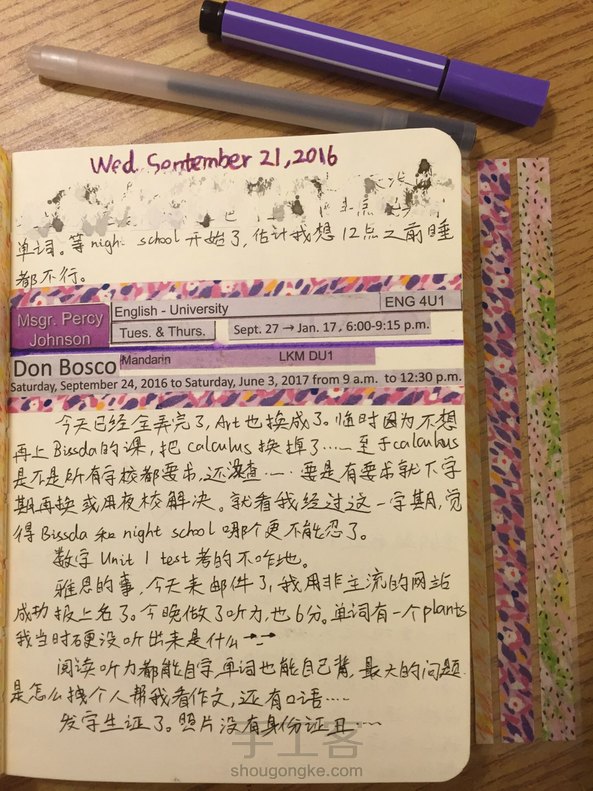 Wed. September 21, 2016
单词。等night school开始了,估计我想12点之前睡
都不行。
Msgr. Percy
Johnson
English - University
ENG 4U1
Tues. & Thurs.
Sept. 27 → Jan. 17, 6:00-9:15 p.m.
Don Bosco
Mandarin
LKM DU1
Saturday, September 24, 2016 to Saturday, June 3, 2017 from 9 a.m. to 12:30 p.m.
今天已经全弄完了,Art也换成了。临时因为不想
再上Bissda的课,把calculus换掉了……至于calculus
是不是所有学校都要求,还没查……要是有要求就下学
期再换或用夜校解决。就看我经过这一学期,觉
得Bissda和night school哪个更不能忍了。
数学Unit 1 test考的不咋地。
雅思的事,今天来邮件了,我用非主流的网站
成功报上名了。今晚做了听力,也6分。单词有一个plants
我当时硬没听出来是什么→_→
阅读听力都能自学,单词也能自己背,最大的问题
是怎么找个人帮我看作文,还有口语……
发学生证了。照片没有身份证丑……
手工客
shougongke.com